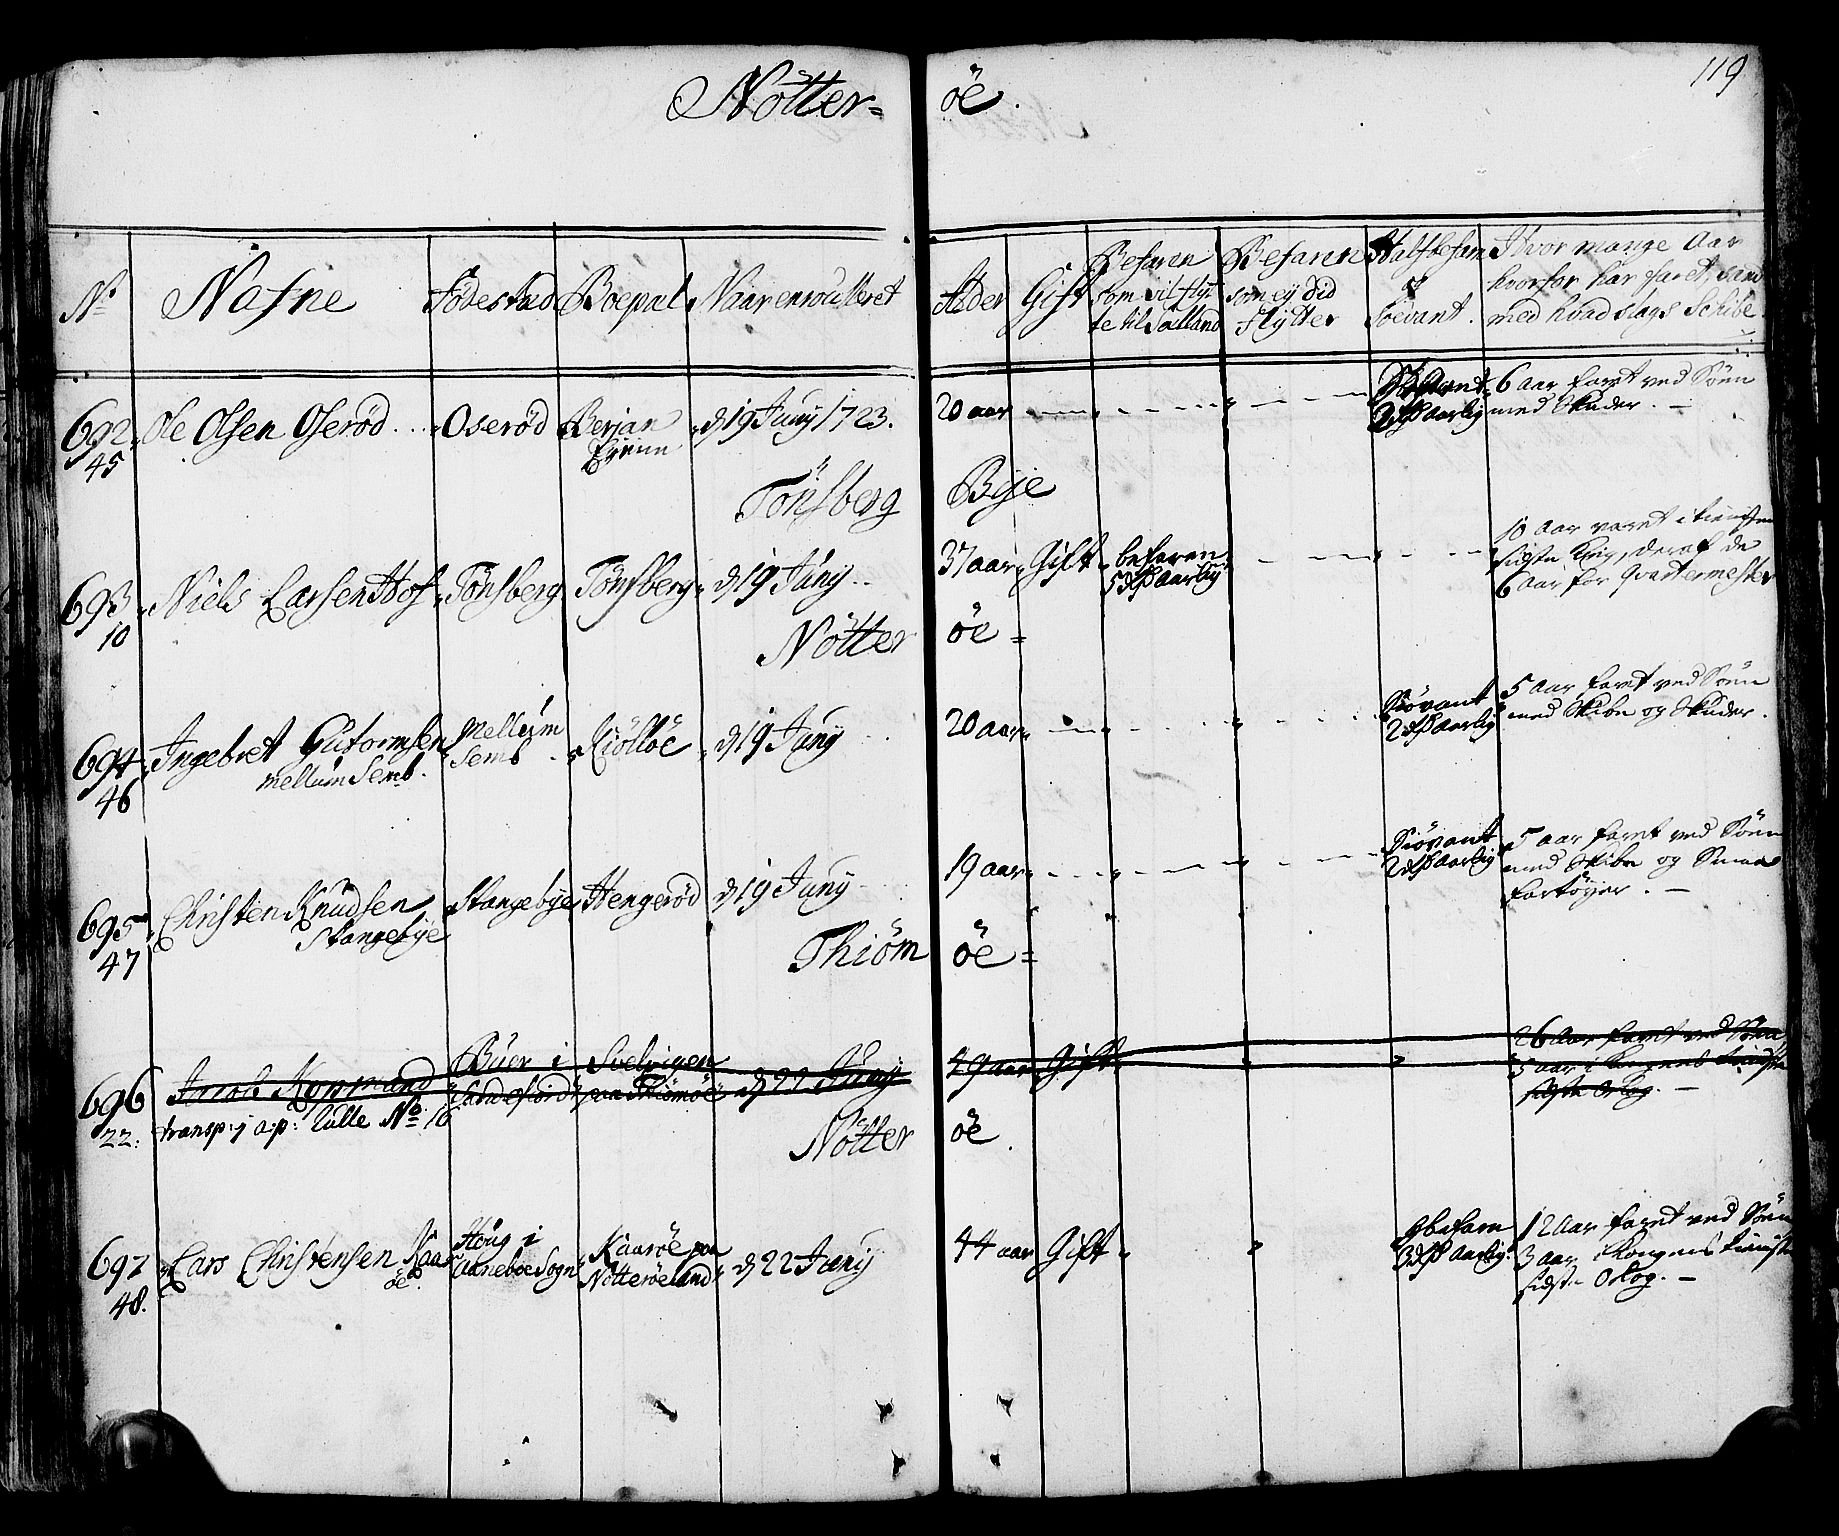 119
Nötter= öe.
No Nafne Födestad Boepæl Naar enroulleret Alder Gift Befaren som vil flyt- te til Sælland Befaren som ej did flytter Halfbefaren og Söevant. Hvor mange Aar hvorfor har faret, samt med hvad slags Schibe
692 45 Ole Olsen Oserød Oserød Berjan d 19 Juny 1723. 20 aar Aarlig 6 Aar faret ved Söen med Skuder. –
Tönsberg Bye
693 10 Niels Larsen Hof Tönsberg Tönsberg d 19 Juny 37 aar Gift befaren 5 Aarlig 10 Aar været i tienisten sidste Krig, deraf de 6 aar for Qvartermester
Nötter öe =
694 46 Ingebret Gutormsen mellum Semb. Mellum Semb Kiölöe d 19 Juny 20 aar Siövant 2 Aarlig 5 Aar faret ved Söen med Skibe og Skuder.
695 47 Christen Knudsen Stangebye Stangebye Hengerød d 19 Juny 19 aar Siövant 2 Aarlig 5 aar faret ved Söen med Skibe og Smaae Fartöyer. –
Thiöm öe =
696 22: Jacob Kopmand transp: j a:p: Rulle No. 16 Buer i Sandefiord Svelvigen paa Thiömöe d 22 Juny 49 aar Gift 26 Aar faret ved Söen, 5 aar i Kongens tieniste sidste Orlog. –
Nötter öe.
697 48. Lars Christensen Kaar öe. Houg i Aaneboe Sogn Kaaröe paa Nötteröeland d 22 Juny 44 aar Gift befaren 3 Aarlig 12 Aar faret ved Söen 3 aar i Kongens tieniste sidste Orlog. –